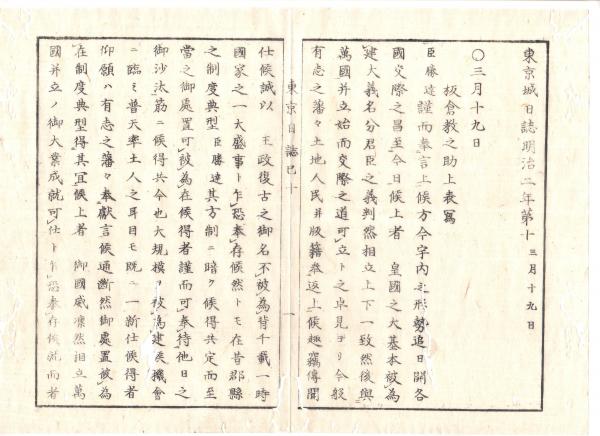 東京城日誌明治二年第十 三月十九日
〇三月十九日
板倉教之助上表寫
臣勝達謹而奉言上候方今宇内之形勢追日開各
國交際之昌至今日候上者 皇國之大基本被為
建大義名分君臣之義判然相立上下一致然後與
萬國并立始而交際之道可立ト之卓見ヨリ今般
有志之藩々土地人民并版籍奉返上候趣竊傳聞
東京日誌巳十 一
仕候誠以 王政復古之御名不被為背千載一時
國家之一大盛事ト乍恐奉存候然トモ在昔郡縣
之制度典型臣勝達其方制ニ暗ク候得共定而至
當之御處置可被為在候得者謹而可奉待他日之
御沙汰筋ニ候得共今也大規模ヲ被為建候機會
ニ臨ミ普天率土人之耳目モ既ニ一新仕候得者
仰願ハ有志之藩々奉獻言候通断然御處置被為
在制度典型得其宜候上者 御國威凛然相立萬
國并立ノ御大業成就可仕ト乍恐奉存候就而者